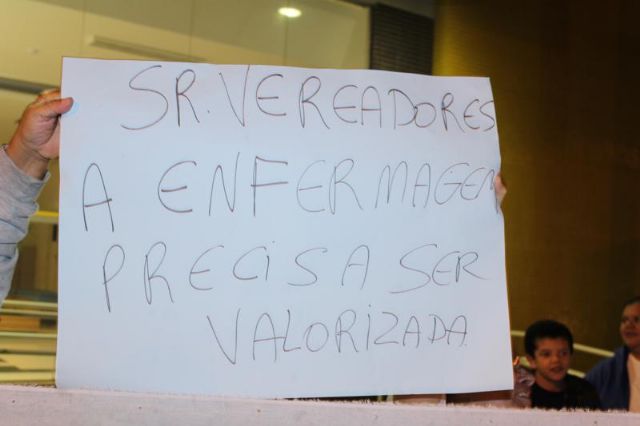 SR. VEREADORES
A ENFERMAGEM
PRECISA SER
VALORIZADA